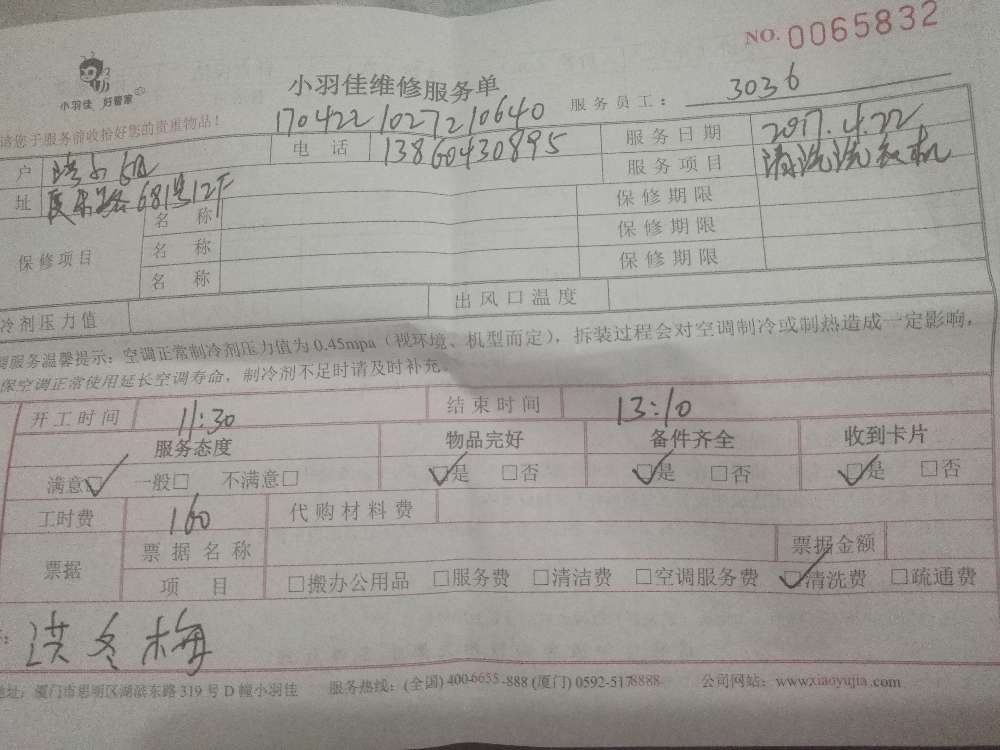 NO. 0065832
小羽佳 好管家
小羽佳维修服务单
请您于服务前收拾好您的贵重物品!
170422102721064​0
服务员工: 3036
户
电 话 13860430895
服务日期 2017.4.22
址 681号12F
服务项目 清洗洗衣机
保修项目
名 称 保修期限
名 称 保修期限
名 称 保修期限
冷剂压力值 出风口温度
调服务温馨提示: 空调正常制冷剂压力值为 0.45mpa (视环境、机型而定), 拆装过程会对空调制冷或制热造成一定影响,
保空调正常使用延长空调寿命, 制冷剂不足时请及时补充。
开工时间 11:30 结束时间 13:10
服务态度 物品完好 备件齐全 收到卡片
满意☑ 一般□ 不满意□ ☑是 □否 ☑是 □否 ☑是 □否
工时费 160 代购材料费
票据 票据名称 票据金额
项 目 □搬办公用品 □服务费 □清洁费 □空调服务费 ☑清洗费 □疏通费
洪冬梅
地址: 厦门市思明区湖滨东路 319 号 D 幢小羽佳 服务热线: (全国) 400-6655-888 (厦门) 0592-5178888 公司网站: www.xiaoyujia.com